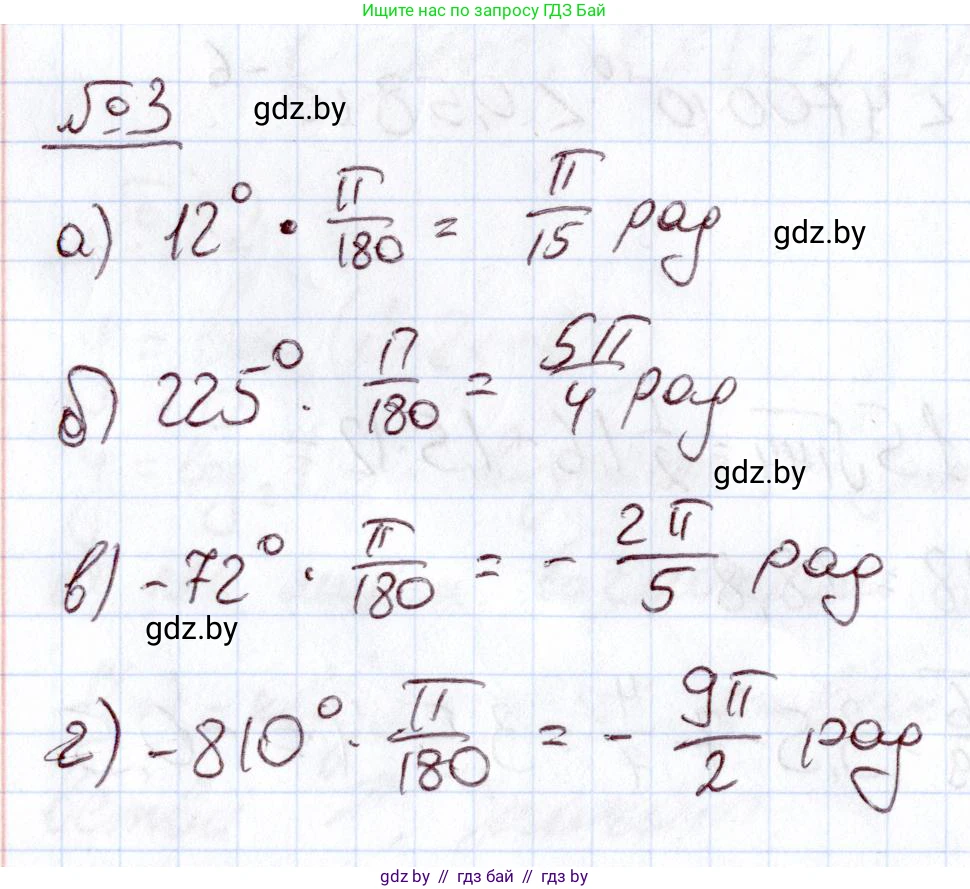 Ищите нас по запросу ГДЗ Бай
№3
gdz.by
а) 12° · π/180 = π/15 рад
gdz.by
б) 225° · π/180 = 5π/4 рад
gdz.by
в) -72° · π/180 = - 2π/5 рад
gdz.by
г) -810° · π/180 = - 9π/2 рад
gdz.by // гдз бай // гдз by